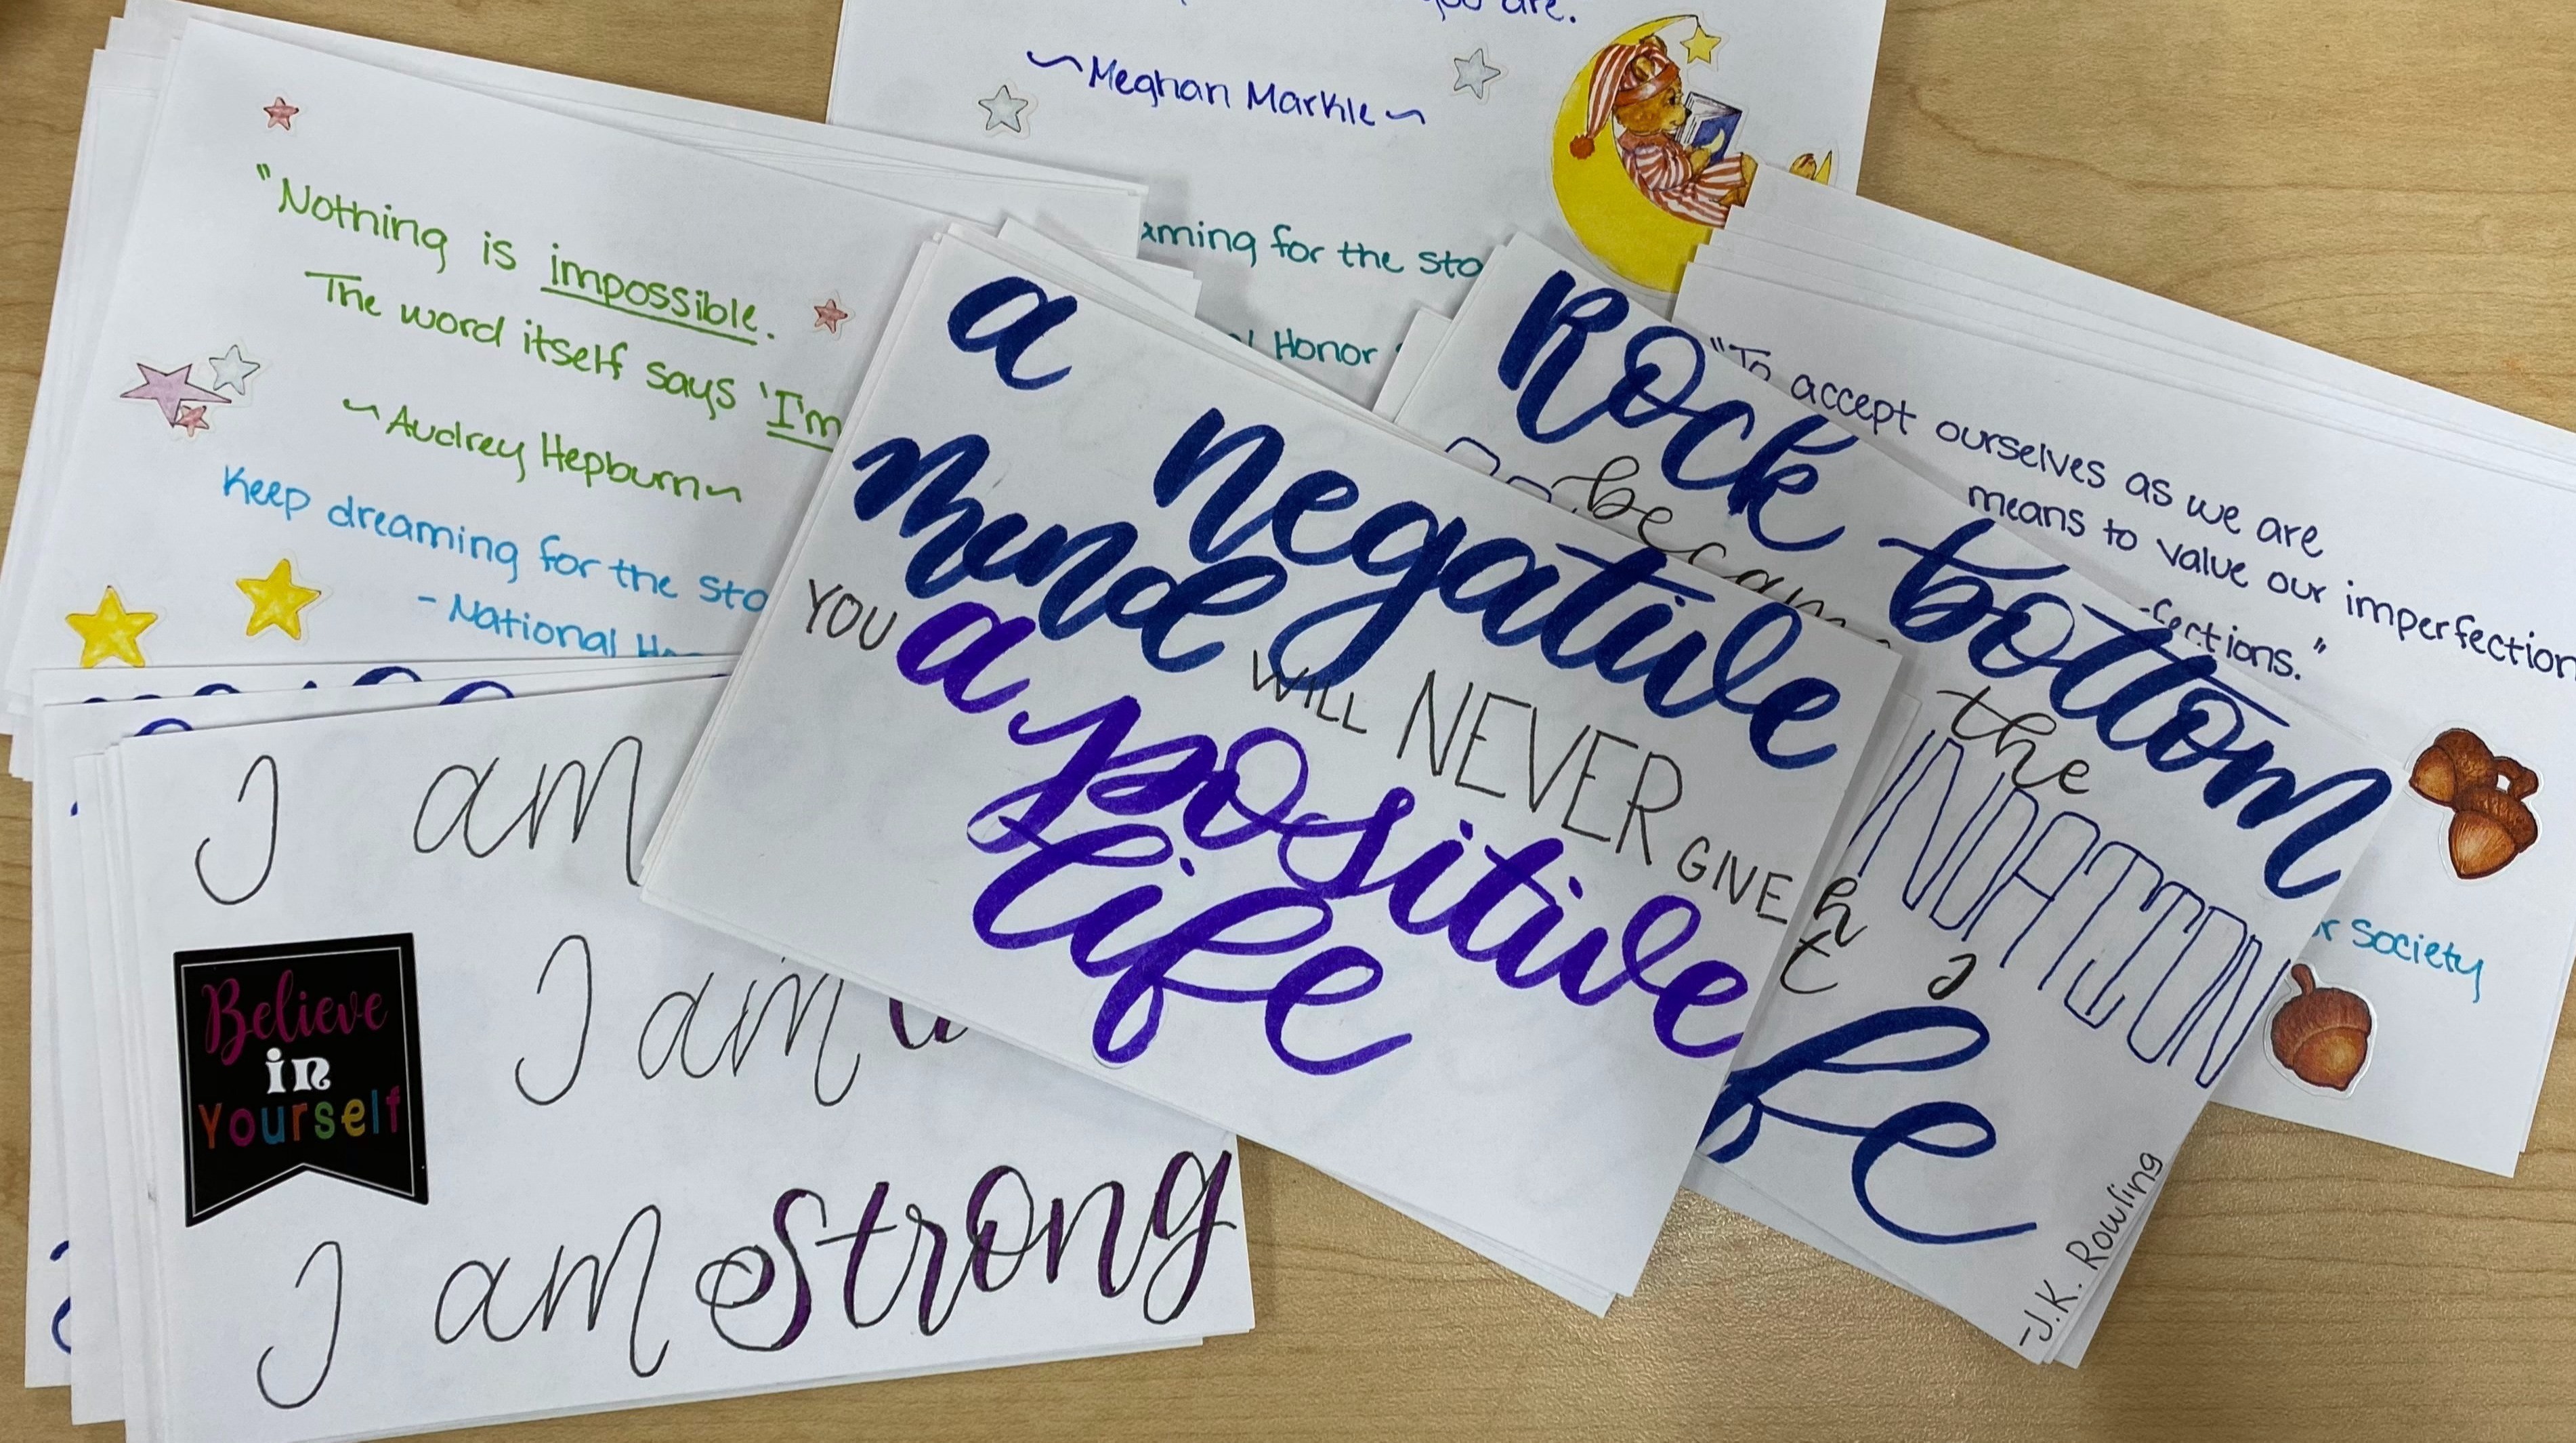 are.
~Meghan Markle~
for the
Honor
"Nothing is impossible.
The word itself says 'I'm
~Audrey Hepburn~
Keep dreaming for the
- National
a negative
mind WILL NEVER GIVE
YOU a positive
life
Rock bottom
became the
-J.K. Rowling
"To accept ourselves as we are
means to value our imperfection
fections."
Society
I am
I am
I am strong
Believe
in
Yourself